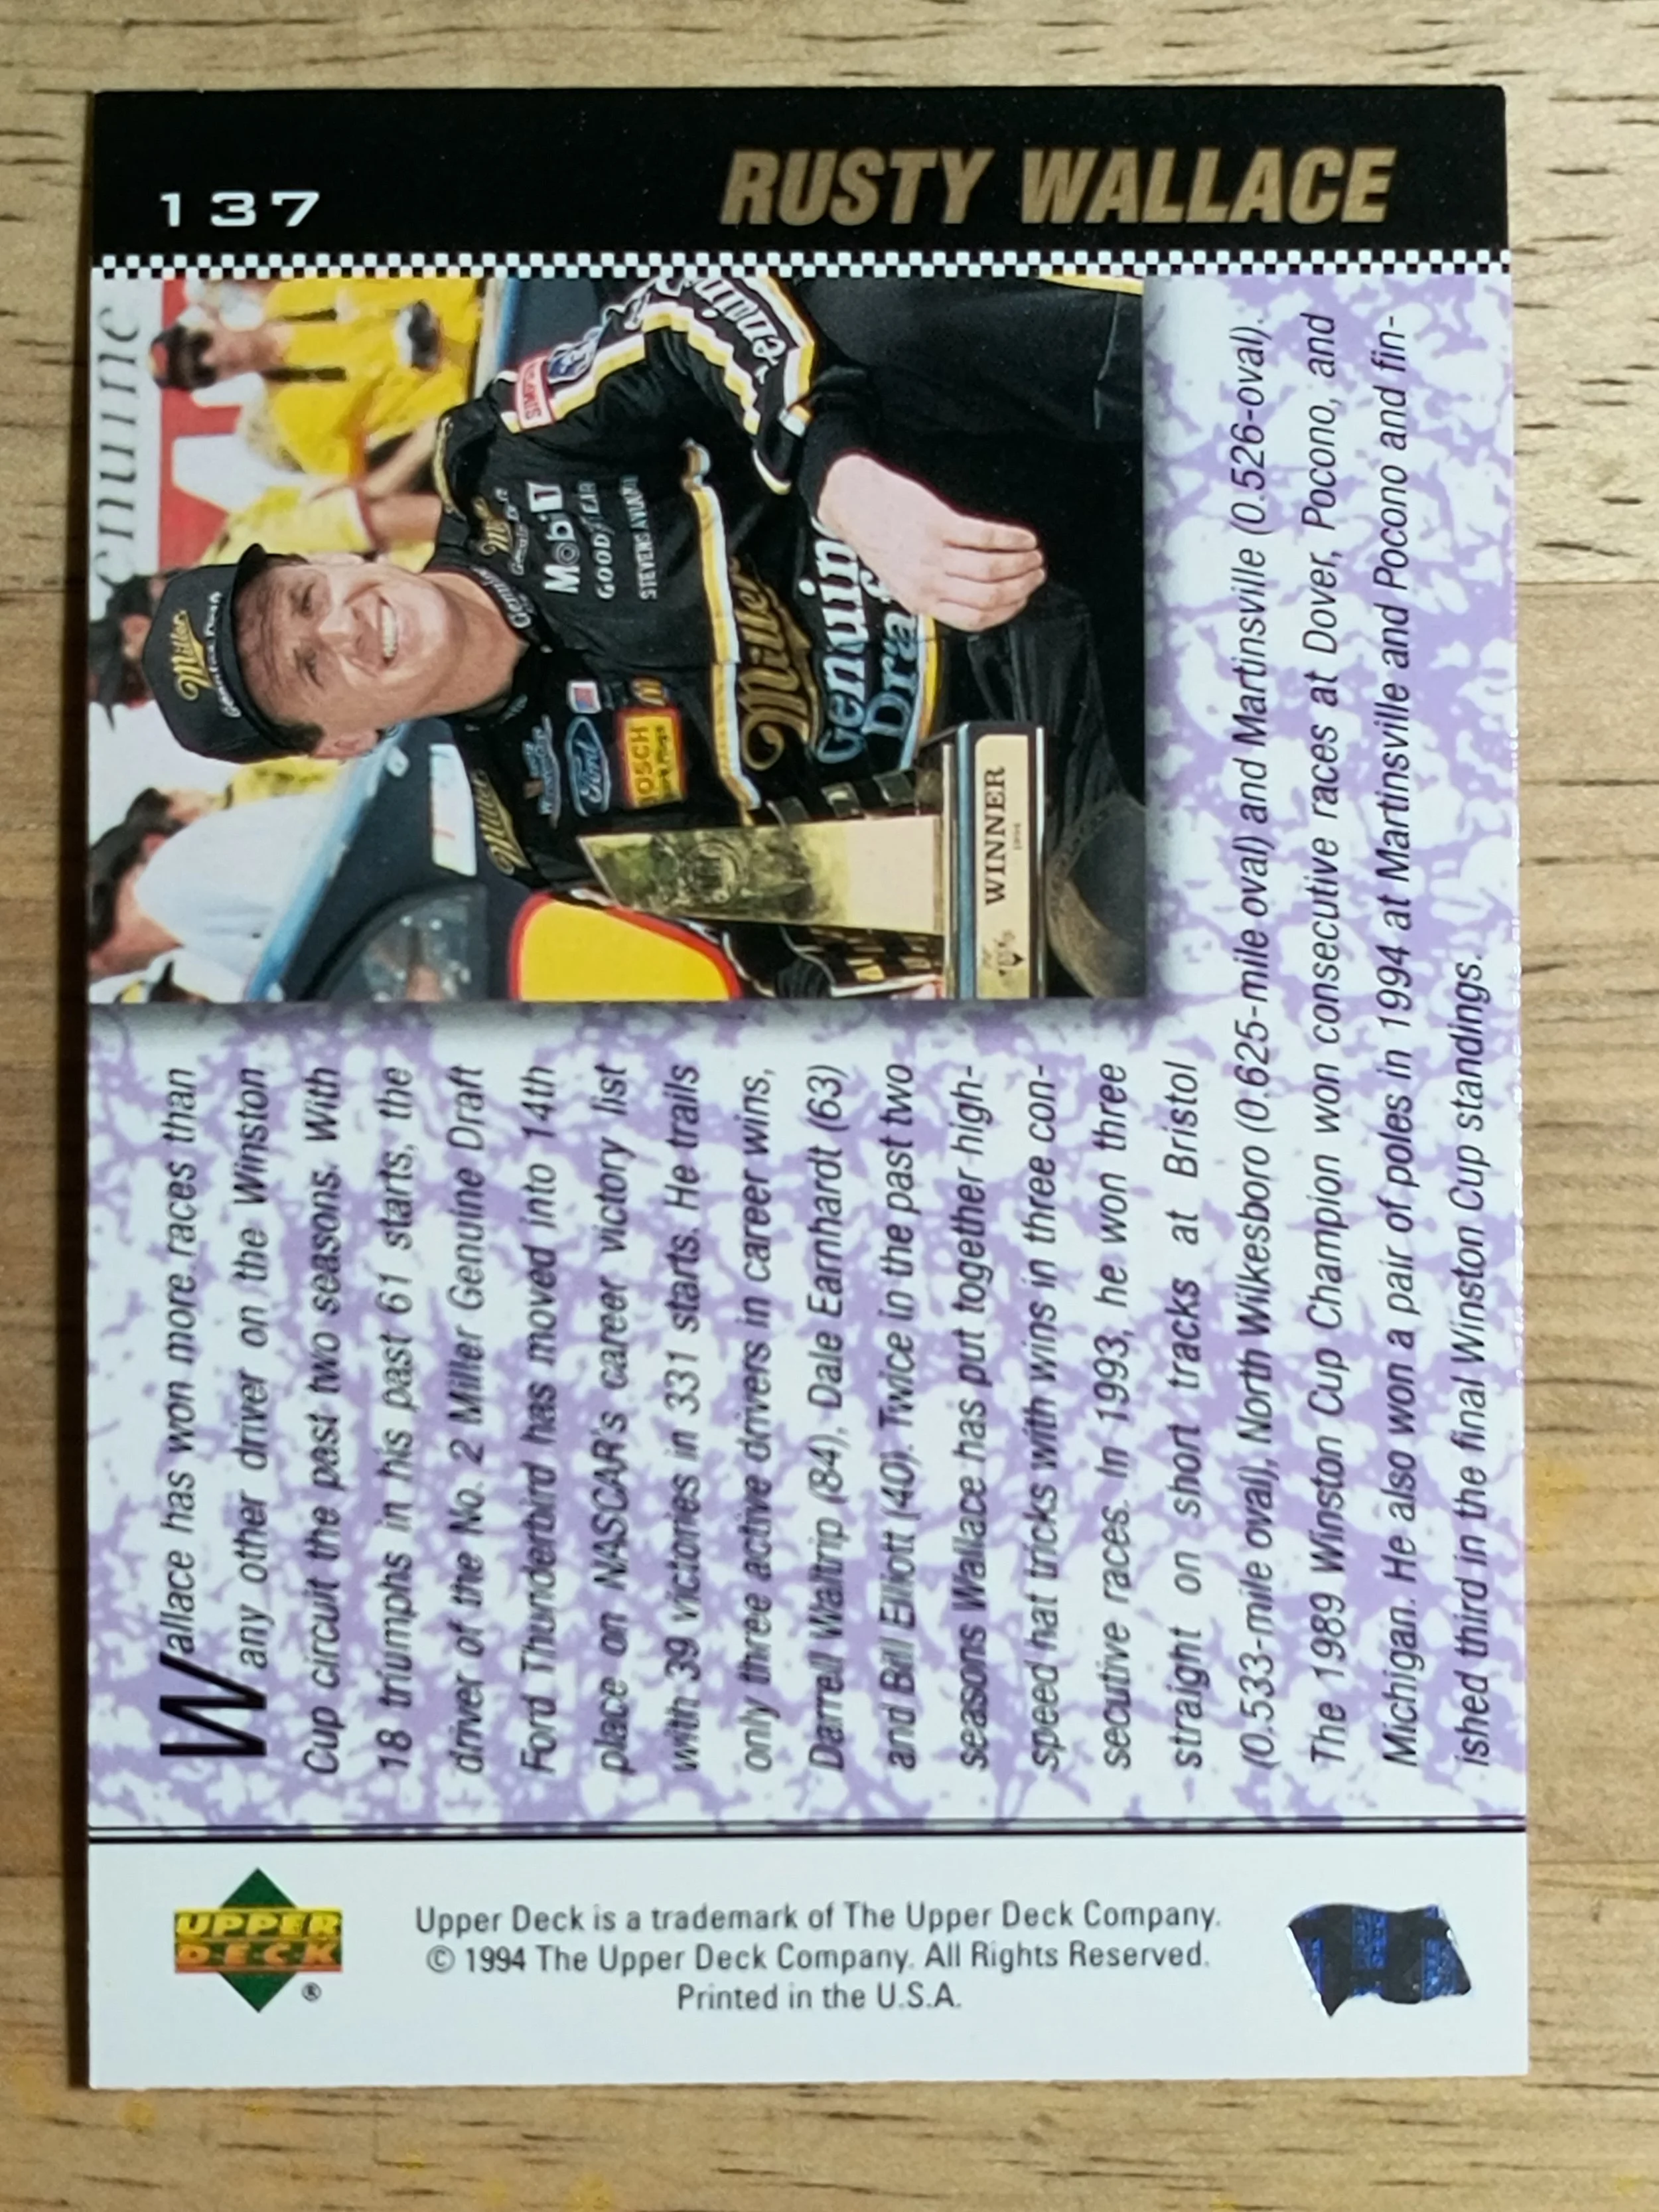 137
RUSTY WALLACE
enuine
Miller
Genuine Draft
SIMPSON
Mobil 1
GOODYEAR
Ford
BOSCH
Miller
Miller
Genuine
Draft
WINNER
1994
Wallace has won more races than
any other driver on the Winston
Cup circuit the past two seasons. With
18 triumphs in his past 61 starts, the
driver of the No. 2 Miller Genuine Draft
Ford Thunderbird has moved into 14th
place on NASCAR's career victory list
with 39 victories in 331 starts. He trails
only three active drivers in career wins,
Darrell Waltrip (84), Dale Earnhardt (63)
and Bill Elliott (40). Twice in the past two
seasons Wallace has put together high-
speed hat tricks with wins in three con-
secutive races. In 1993, he won three
straight on short tracks at Bristol
(0.533-mile oval), North Wilkesboro (0.625-mile oval) and Martinsville (0.526-oval).
The 1989 Winston Cup Champion won consecutive races at Dover, Pocono, and
Michigan. He also won a pair of poles in 1994 at Martinsville and Pocono and fin-
ished third in the final Winston Cup standings.
UPPER
DECK
®
Upper Deck is a trademark of The Upper Deck Company.
© 1994 The Upper Deck Company. All Rights Reserved.
Printed in the U.S.A.